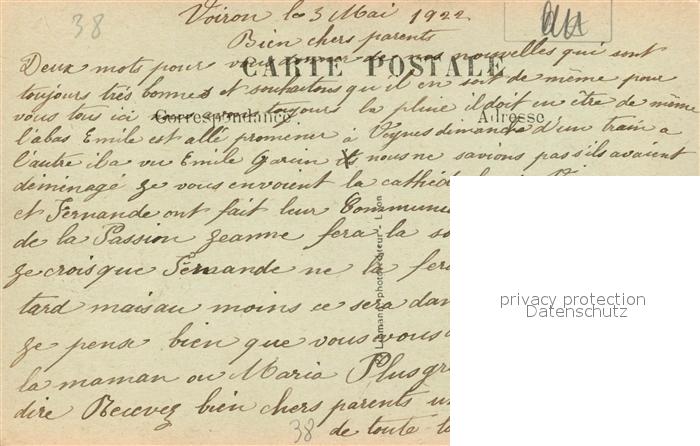 38
Voiron le 3 Mai 1922
Bien chers parents
Deux mots pour vous donner de nos nouvelles qui sont
CARTE POSTALE
toujours très bonnes et souhaitons qu'il en soit de même pour
vous tous ici toujours la pluie il doit en être de même
Correspondance
Adresse
l'abas Emile est allé promener à Veynes dimanche d'un train a
l'autre il a vu Emile Garcin nous ne savions pas s'ils avaient
déménagé Je vous envoient la cathéd
et Fernande ont fait leur Commun
de la Passion Jeanne fera la so
Je crois que Fernande ne la fer
tard mais au moins ce sera dan
Je pense bien que vous vous
la maman ou Maria Plus gr
dire Recevez bien chers parents u
38
de toute t
photo-éditeur - Lyon
privacy protection
Datenschutz